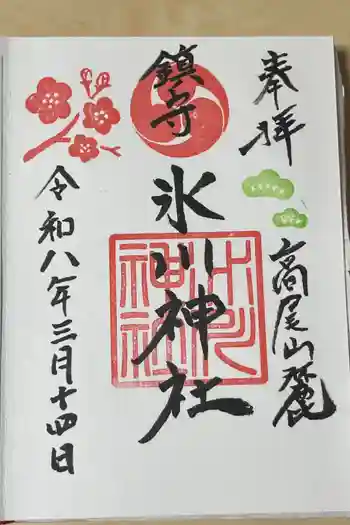 奉拝
高尾山麓
鎮守
氷川神社
氷川
神社
令和八年三月十四日